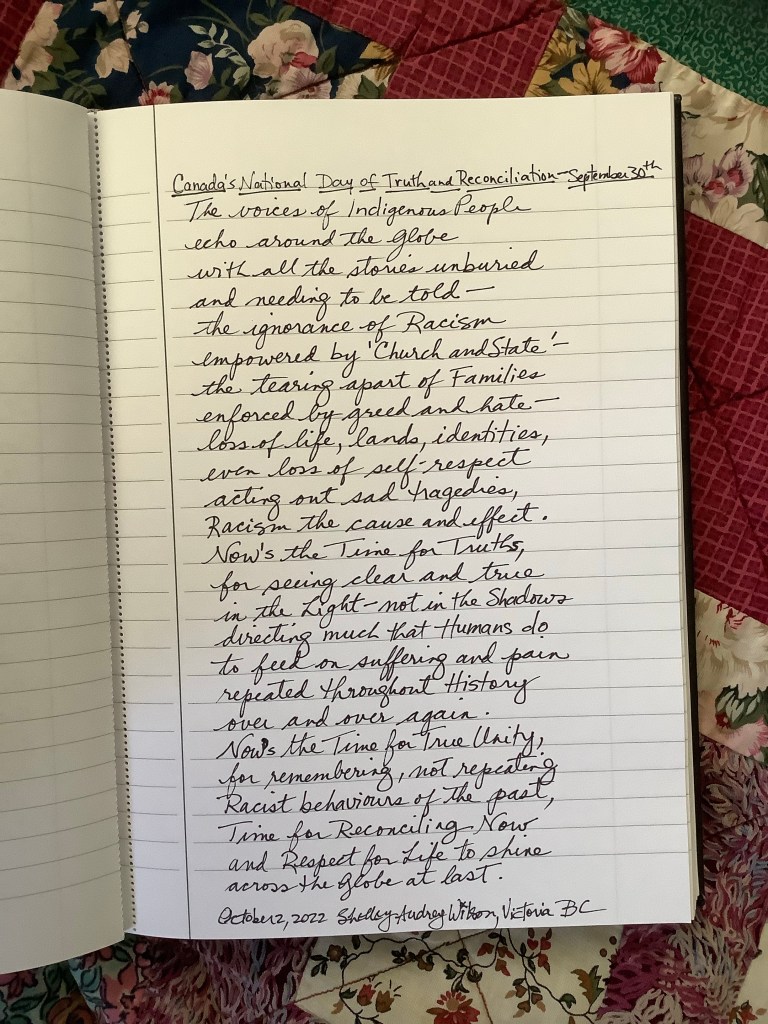 Canada's National Day of Truth and Reconciliation - September 30th
The voices of Indigenous People
echo around the Globe
with all the stories unburied
and needing to be told —
the ignorance of Racism
empowered by 'Church and State' —
the tearing apart of Families
enforced by greed and hate —
loss of life, lands, identities,
even loss of self-respect
acting out sad tragedies,
Racism the cause and effect.
Now's the Time for Truths,
for seeing clear and true
in the Light - not in the Shadows
directing much that Humans do
to feed on suffering and pain
repeated throughout History
over and over again.
Now's the Time for True Unity,
for remembering, not repeating
Racist behaviours of the past,
Time for Reconciling Now
and Respect for Life to shine
across the Globe at last.
October 2, 2022 Shelley-Audrey Wilson, Victoria BC